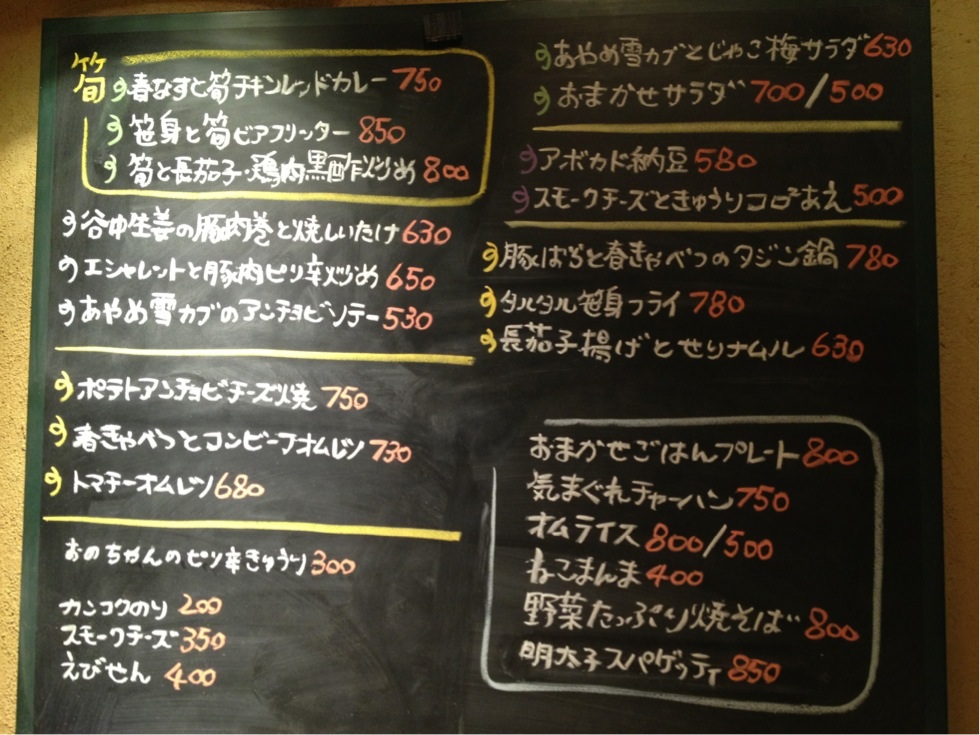 筍
春なすと筍チキンレッドカレー 750
笹身と筍ビアフリッター 850
筍と長茄子・鶏肉黒酢炒め 800
谷中生姜の豚肉巻と焼しいたけ 630
エシャレットと豚肉ピリ辛炒め 650
あやめ雪カブのアンチョビソテー 530
ポテトアンチョビチーズ焼 750
春きゃべつとコンビーフオムレツ 730
トマチーオムレツ 680
おのちゃんのピリ辛きゅうり 300
カンコクのり 200
スモークチーズ 350
えびせん 400
あやめ雪カブとじゃこ梅サラダ 630
おまかせサラダ 700/500
アボカド納豆 580
スモークチーズときゅうりコロコロあえ 500
豚ばらと春きゃべつのタジン鍋 780
タルタル笹身フライ 780
長茄子揚げとせりナムル 630
おまかせごはんプレート 800
気まぐれチャーハン 750
オムライス 800/500
ねこまんま 400
野菜たっぷり焼そば 800
明太子スパゲッティ 850